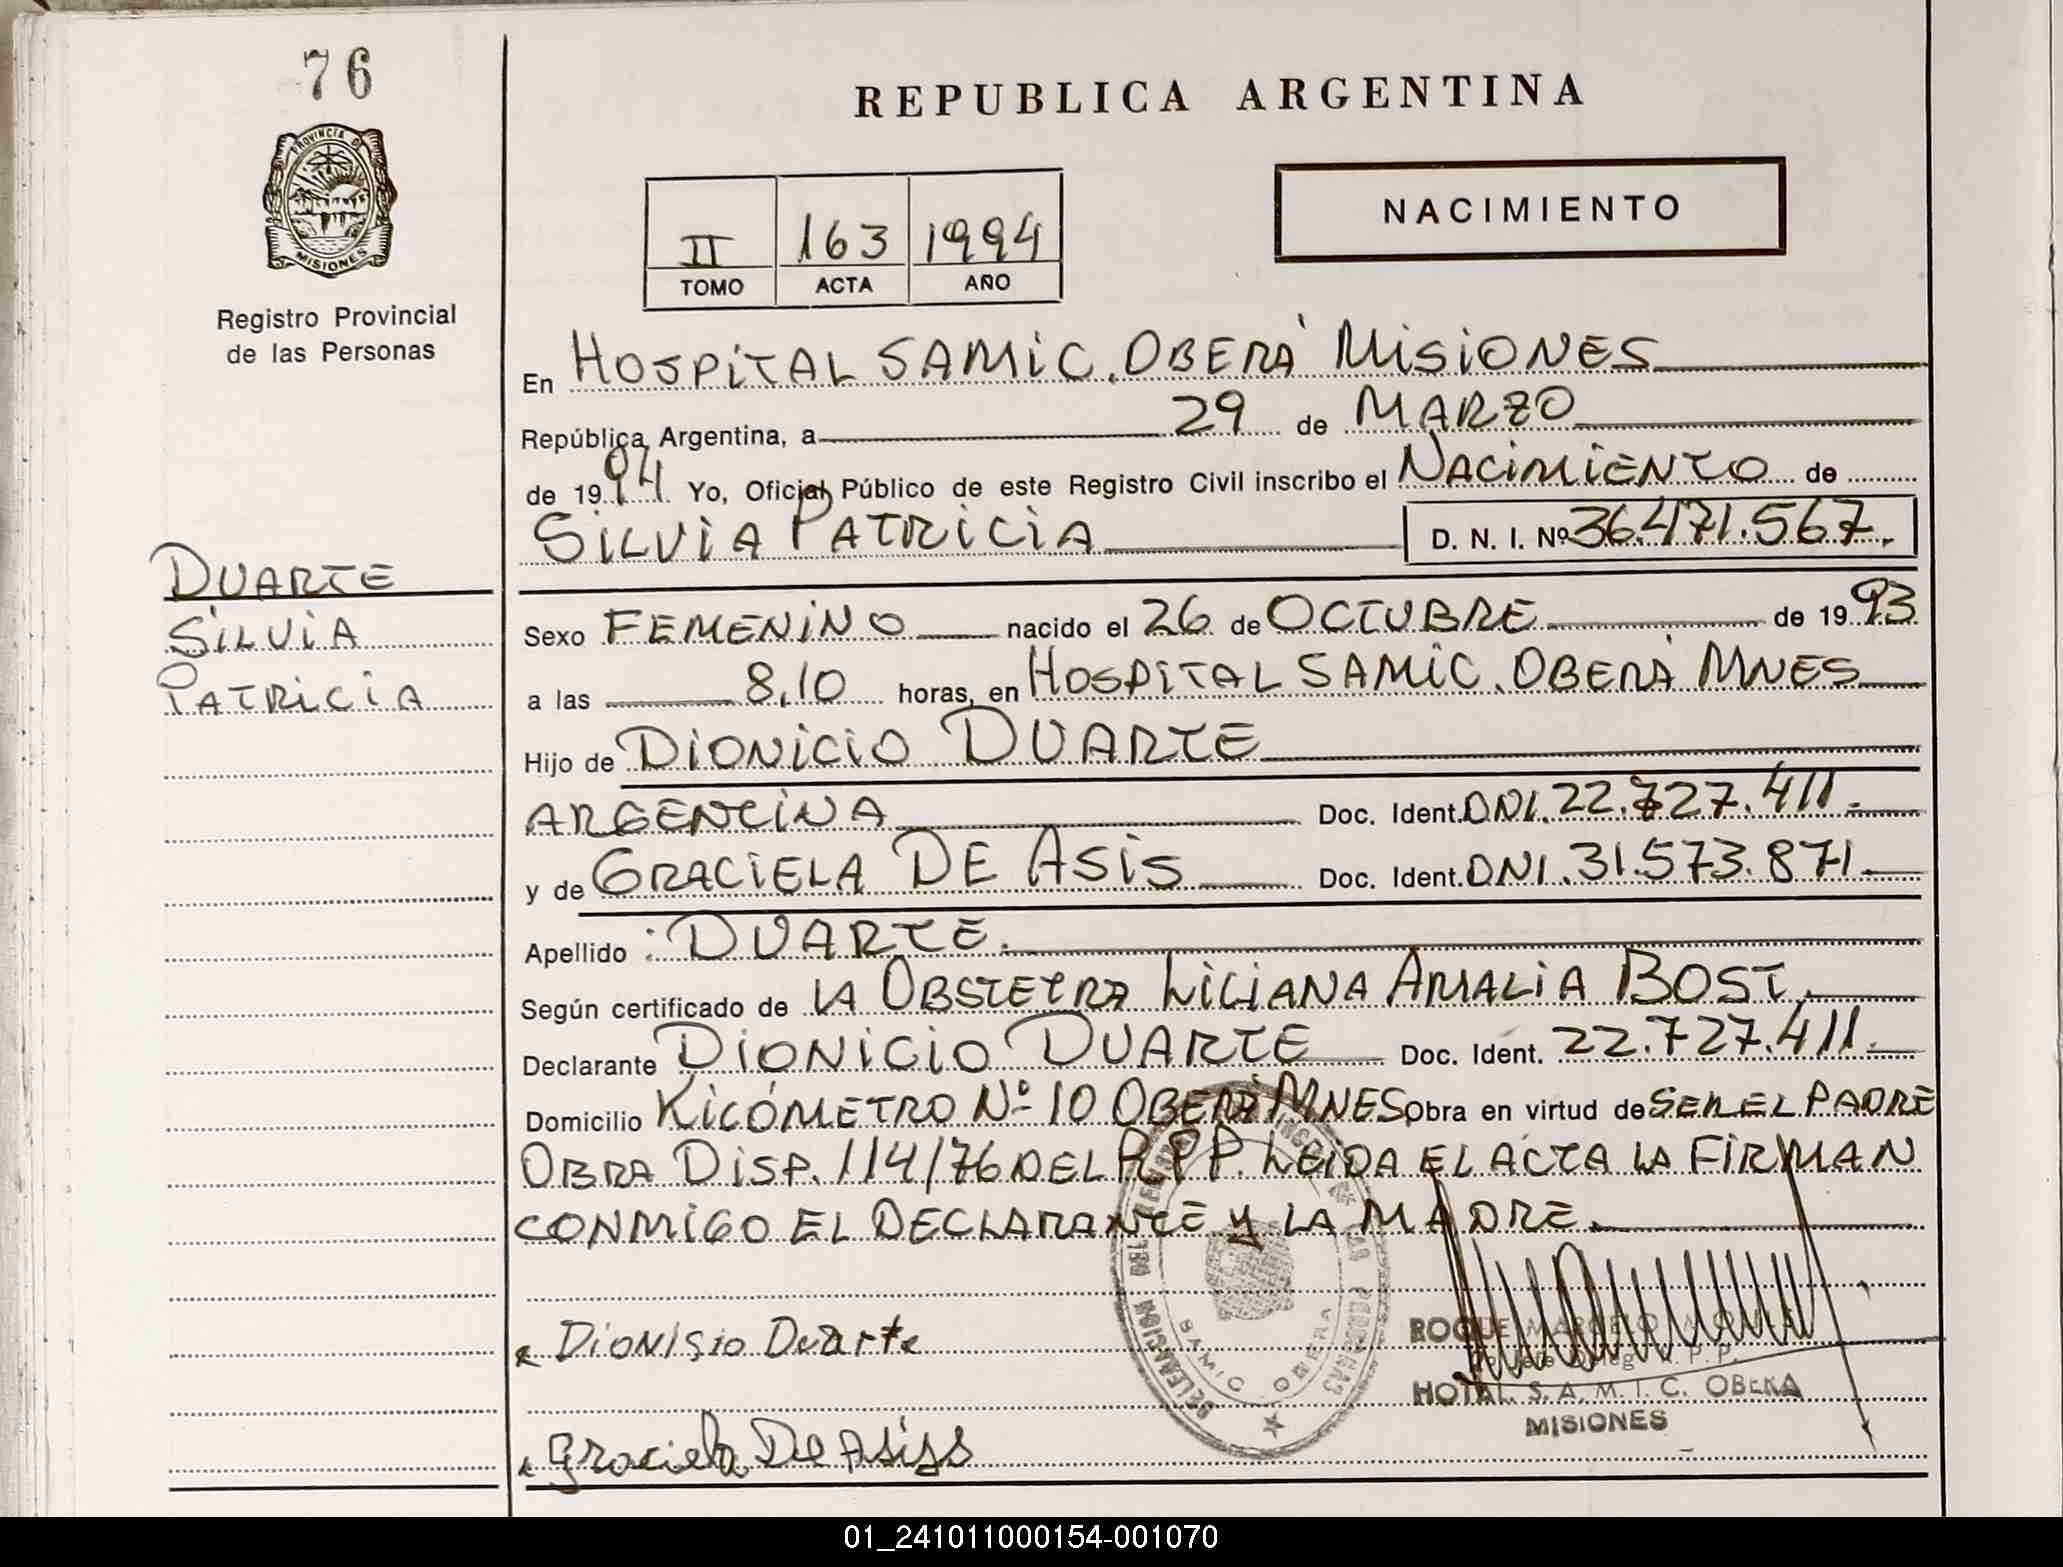 76
REPUBLICA ARGENTINA
PROVINCIA DE
MISIONES
Registro Provincial
de las Personas
II 163 1994
TOMO ACTA AÑO
NACIMIENTO
En HOSPITAL SAMIC. OBERÁ MISIONES
República Argentina, a 29 de MARZO
de 1994 Yo, Oficial Público de este Registro Civil inscribo el NACIMIENTO de
SILVIA PATRICIA D. N. I. Nº 36.471.567.
DUARTE
SILVIA
PATRICIA
Sexo FEMENINO nacido el 26 de OCTUBRE de 1993
a las 8,10 horas, en HOSPITAL SAMIC. OBERÁ MNES
Hijo de DIONICIO DUARTE
ARGENTINA Doc. Ident. DNI. 22.727.411.
y de GRACIELA DE ASIS Doc. Ident. DNI. 31.573.871.
Apellido : DUARTE.
Según certificado de LA OBSTETRA LILIANA AMALIA BOST.
Declarante DIONICIO DUARTE Doc. Ident. 22.727.411.
Domicilio KILÓMETRO Nº 10 OBERÁ MNES Obra en virtud de SER EL PADRE
OBRA DISP. 114/76 DEL R.P.P. LEIDA EL ACTA LA FIRMAN
CONMIGO EL DECLARANTE Y LA MADRE.
Dionisio Duarte
Graciela De Asiss
SAMIC OBERA
ROQUE
HOTAL. S. A. M. I. C. OBERA
MISIONES
01_241011000154-001070